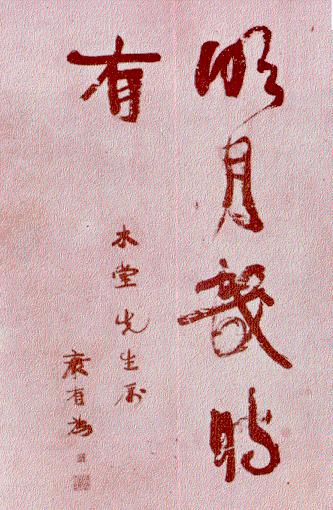 明月幾時
有
木堂先生屬
康有為